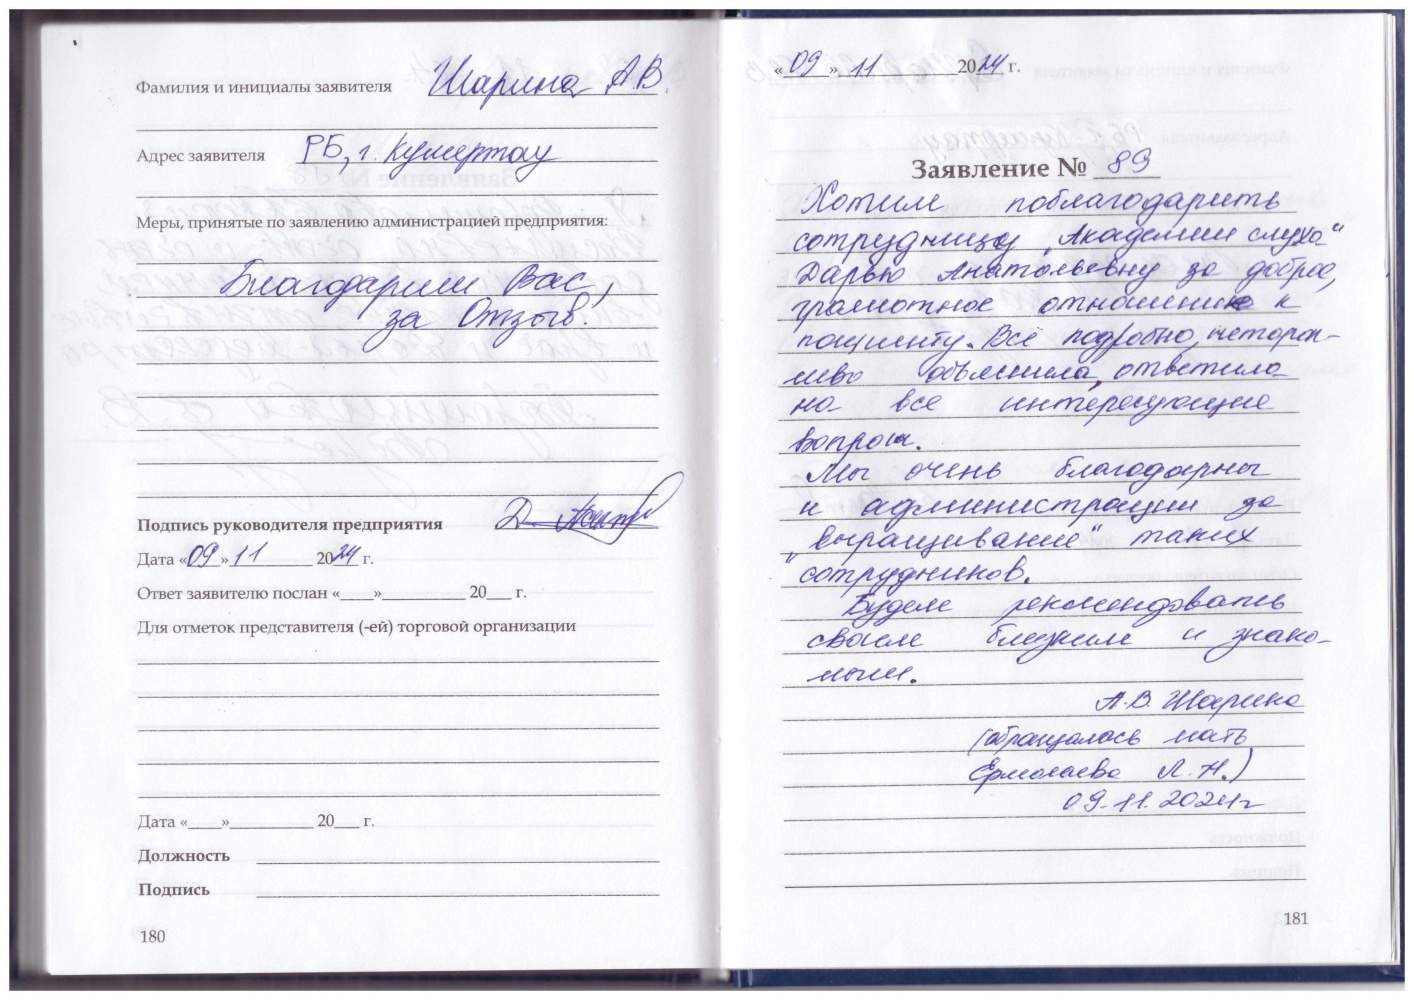 Фамилия и инициалы заявителя Шарина А.В.
Адрес заявителя РБ, г. Кумертау
Меры, принятые по заявлению администрацией предприятия:
Благодарим Вас
за Отзыв!
Подпись руководителя предприятия
Дата «09» 11 2024 г.
Ответ заявителю послан «___»__________ 20___ г.
Для отметок представителя (-ей) торговой организации
Дата «____»__________ 20___ г.
Должность
Подпись
180
«09» 11 2024 г.
Заявление № 89
Хотим поблагодарить
сотрудницу „Академии слуха“
Дарью Анатольевну за доброе,
грамотное отношение к
пациенту. Всё подробно, нетороп-
ливо объяснила, ответила
на все интересующие
вопросы.
Мы очень благодарны
и администрации за
„выращивание“ таких
сотрудников.
Будем рекомендовать
своим близким и знако-
мым.
А.В. Шарина
(обращалась мать
Ермолаева Л.Н.)
09.11.2024г
181